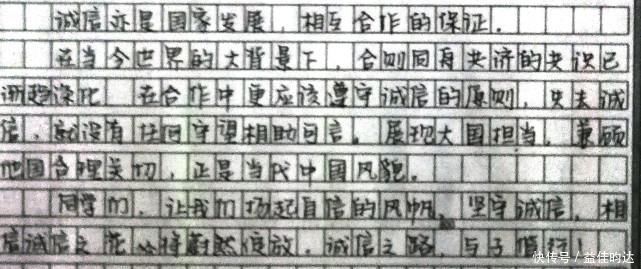 诚信亦是国家发展，相互合作的保证．
在当今世界的大背景下，合则同舟共济的共识已
渐趋深化．在合作中更应该遵守诚信的原则，失去诚
信，就没有任何守望相助可言，展现大国担当，兼顾
他国合理关切，正是当代中国风貌．
同学们，让我们扬起自信的风帆，坚守诚信，相
信诚信之花必将蔚然绽放．诚信之路，与子偕行
快传号／益佳昀达